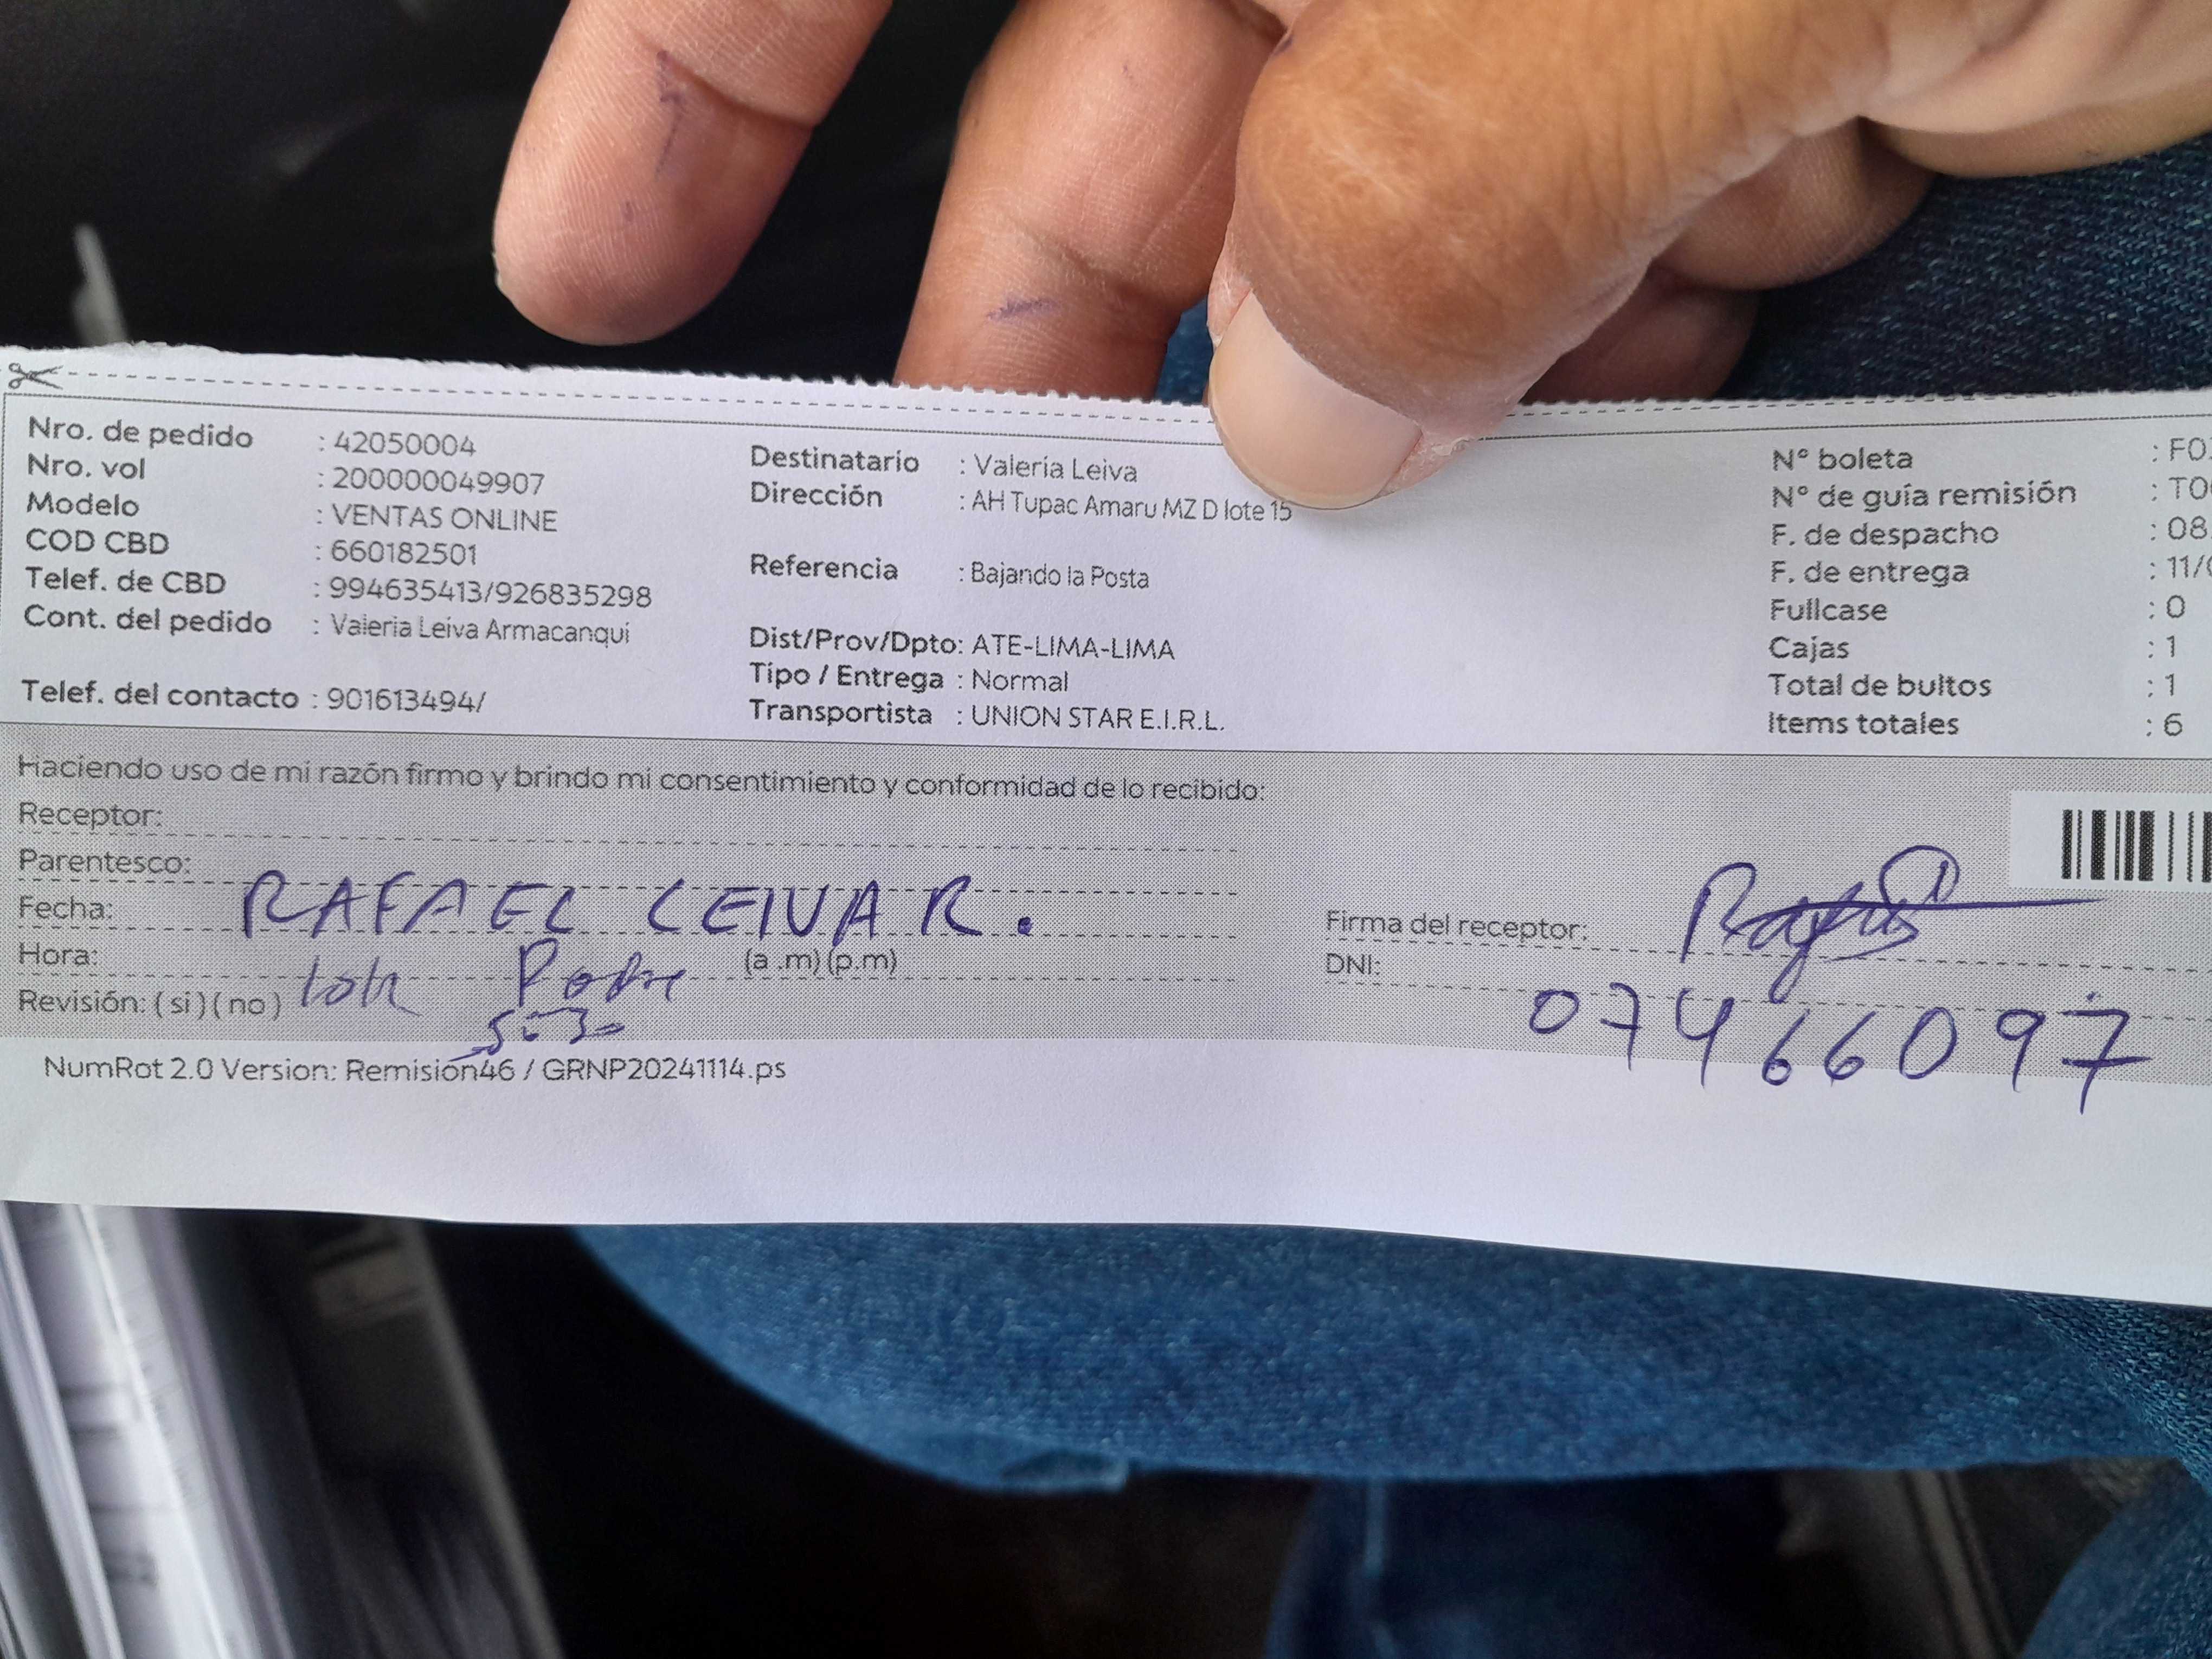 Nro. de pedido : 42050004
Nro. vol : 200000049907
Modelo : VENTAS ONLINE
COD CBD : 660182501
Telef. de CBD : 994635413/926835298
Cont. del pedido : Valeria Leiva Armacanqui
Telef. del contacto : 901613494/
Destinatario : Valeria Leiva
Dirección : AH Tupac Amaru MZ D lote 15
Referencia : Bajando la Posta
Dist/Prov/Dpto: ATE-LIMA-LIMA
Tipo / Entrega : Normal
Transportista : UNION STAR E.I.R.L.
N° boleta : F0
N° de guía remisión : T0
F. de despacho : 08
F. de entrega : 11/
Fullcase : 0
Cajas : 1
Total de bultos : 1
Items totales : 6
Haciendo uso de mi razón firmo y brindo mi consentimiento y conformidad de lo recibido:
Receptor:
Parentesco:
Fecha: RAFAEL LEIVA R.
Hora: (a .m) (p.m)
Revisión: ( si ) ( no )
Firma del receptor:
DNI:
07466097
NumRot 2.0 Version: Remisión46 / GRNP20241114.ps